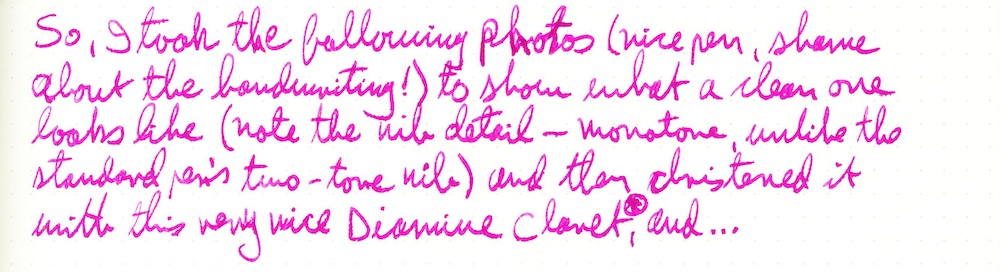 So, I took the following photos (nice pen, shame
about the handwriting!) to show what a clean one
looks like (note the nib detail – monotone, unlike the
standard pen's two-tone nib) and then christened it
with this very nice Diamine Claret,⊛ and...